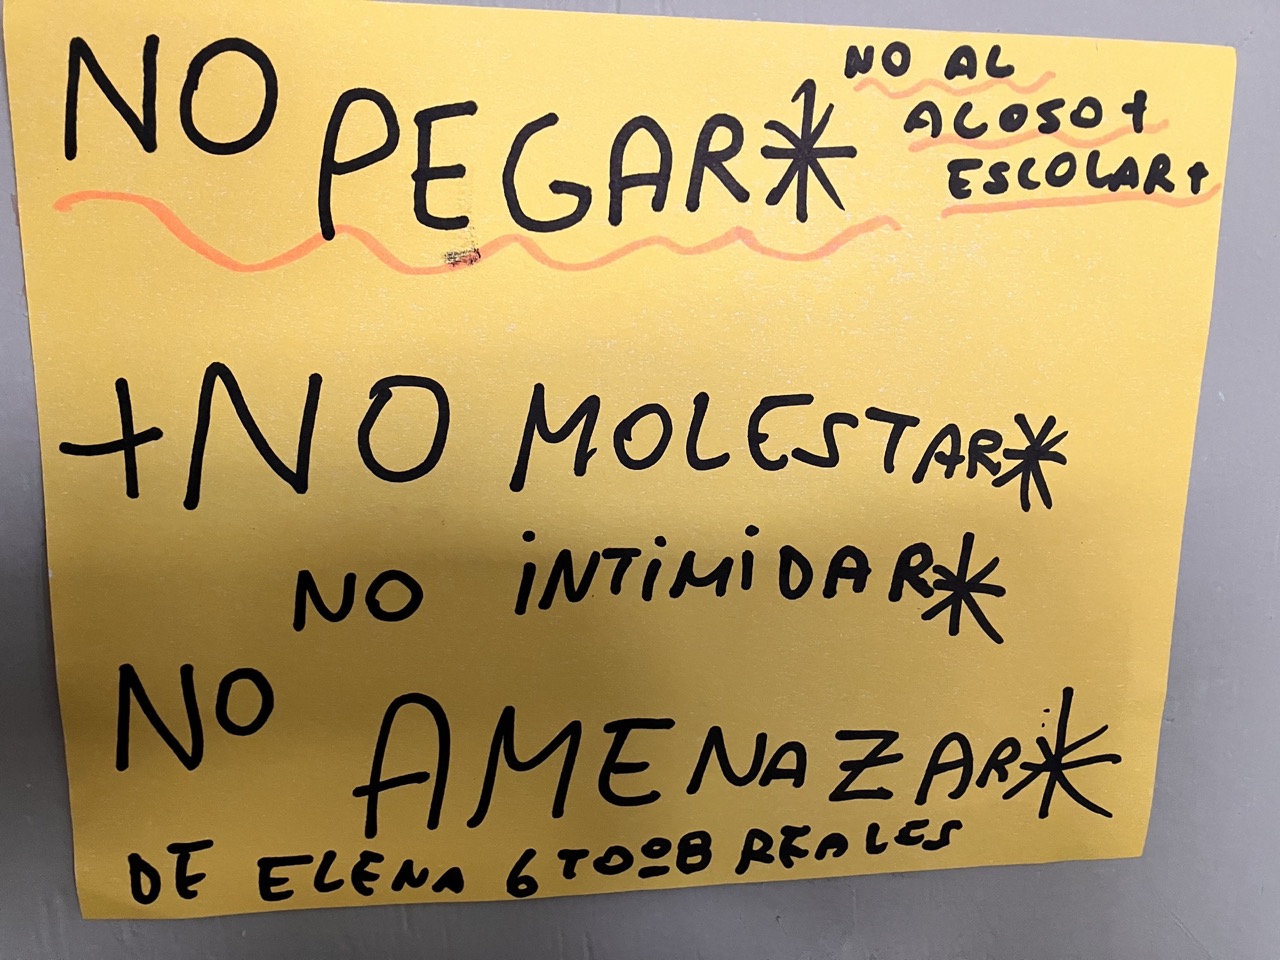 NO PEGAR*
NO AL
ACOSO+
ESCOLAR+
+NO MOLESTAR*
NO INTIMIDAR*
NO AMENAZAR*
DE ELENA 6TOºB REALES